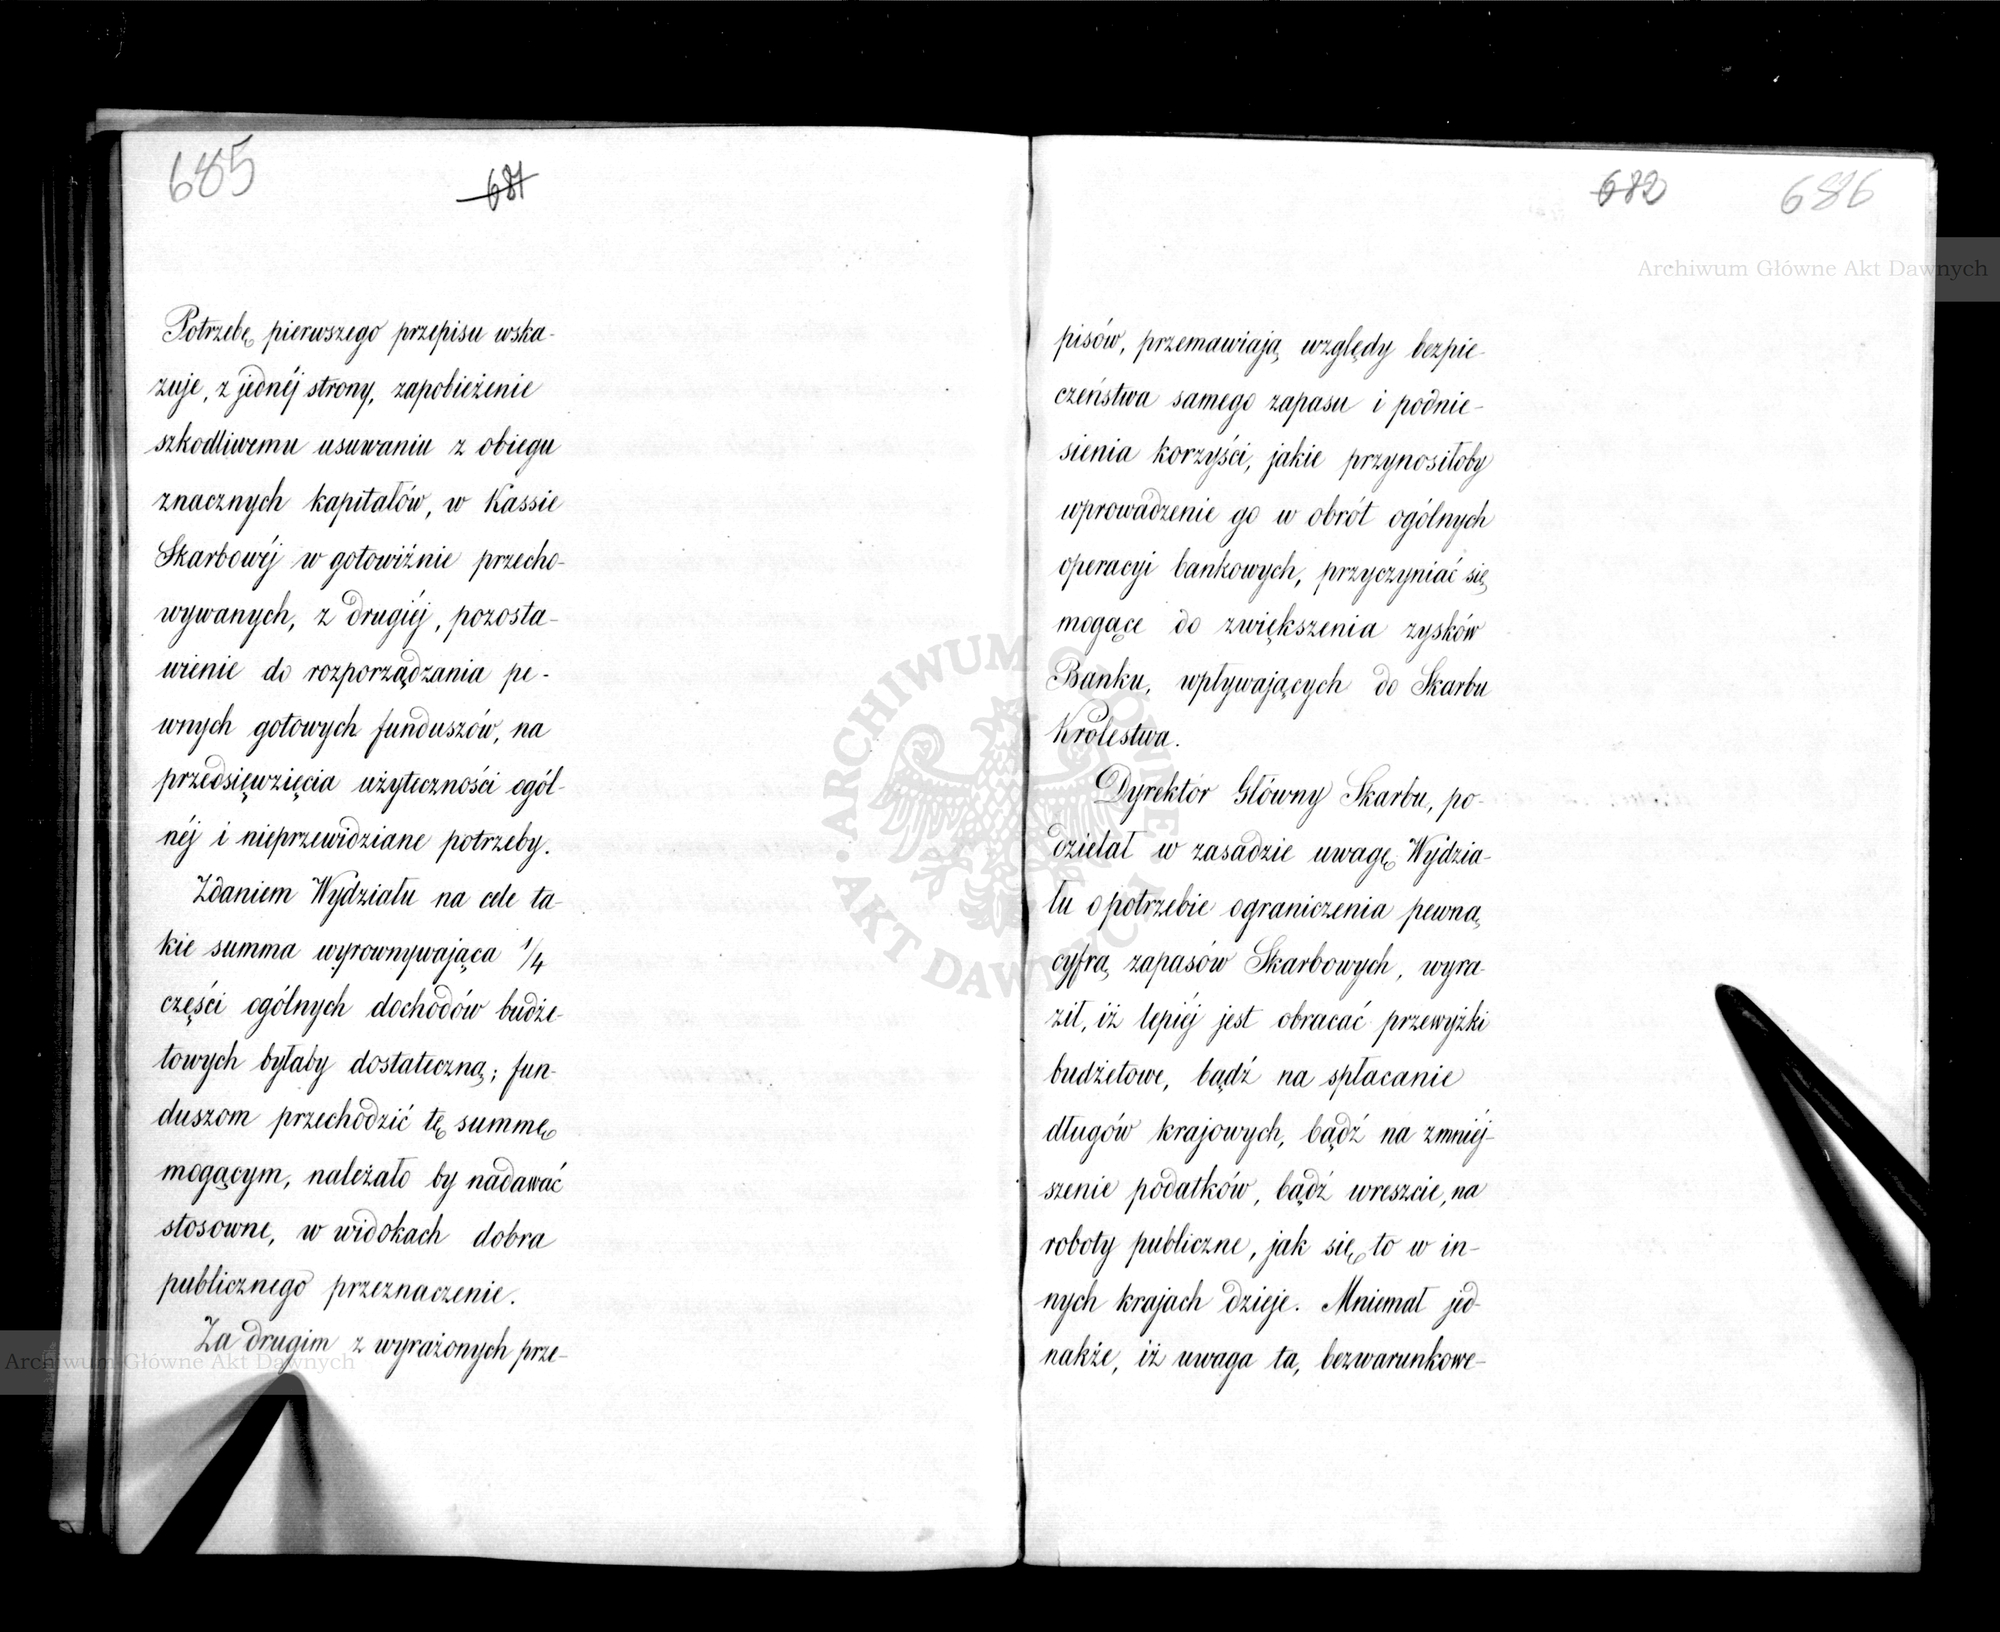 685
681
Potrzebę pierwszego przepisu wska-
zuje, z jednéj strony, zapobieżenie
szkodliwemu usuwaniu z obiegu
znacznych kapitałów, w Kassie
Skarbowéj w gotowiźnie przecho-
wywanych, z drugiéj, pozosta-
wienie do rozporządzania pe-
wnych gotowych funduszów, na
przedsięwzięcia użyteczności ogól-
néj i nieprzewidziane potrzeby.
Zdaniem Wydziału na cele ta-
kie summa wyrownywająca 1/4
części ogólnych dochodów budże-
towych byłaby dostateczną; fun-
duszom przechodzić tę summę
mogącym, należało by nadawać
stosowne, w widokach dobra
publicznego przeznaczenie.
Za drugim z wyrażonych prze-
682
686
pisów, przemawiają względy bezpie-
czeństwa samego zapasu i podnie-
sienia korzyści, jakie przynosiłoby
wprowadzenie go w obrót ogólnych
operacyi bankowych, przyczyniać się
mogące do zwiększenia zysków
Banku, wpływających do Skarbu
Królestwa.
Dyrektór Główny Skarbu, po-
dzielał w zasadzie uwagę Wydzia-
łu o potrzebie ograniczenia pewną
cyfrą zapasów Skarbowych, wyra-
ził, iż lepiéj jest obracać przewyżki
budżetowe, bądź na spłacanie
długów krajowych, bądź na zmniéj-
szenie podatków, bądź wreszcie, na
roboty publiczne, jak się to w in-
nych krajach dzieje. Mniemał jed-
nakże, iż uwaga ta, bezwarunkowe-
Archiwum Główne Akt Dawnych
Archiwum Główne Akt Dawnych
ARCHIWUM GŁÓWNE AKT DAWNYCH